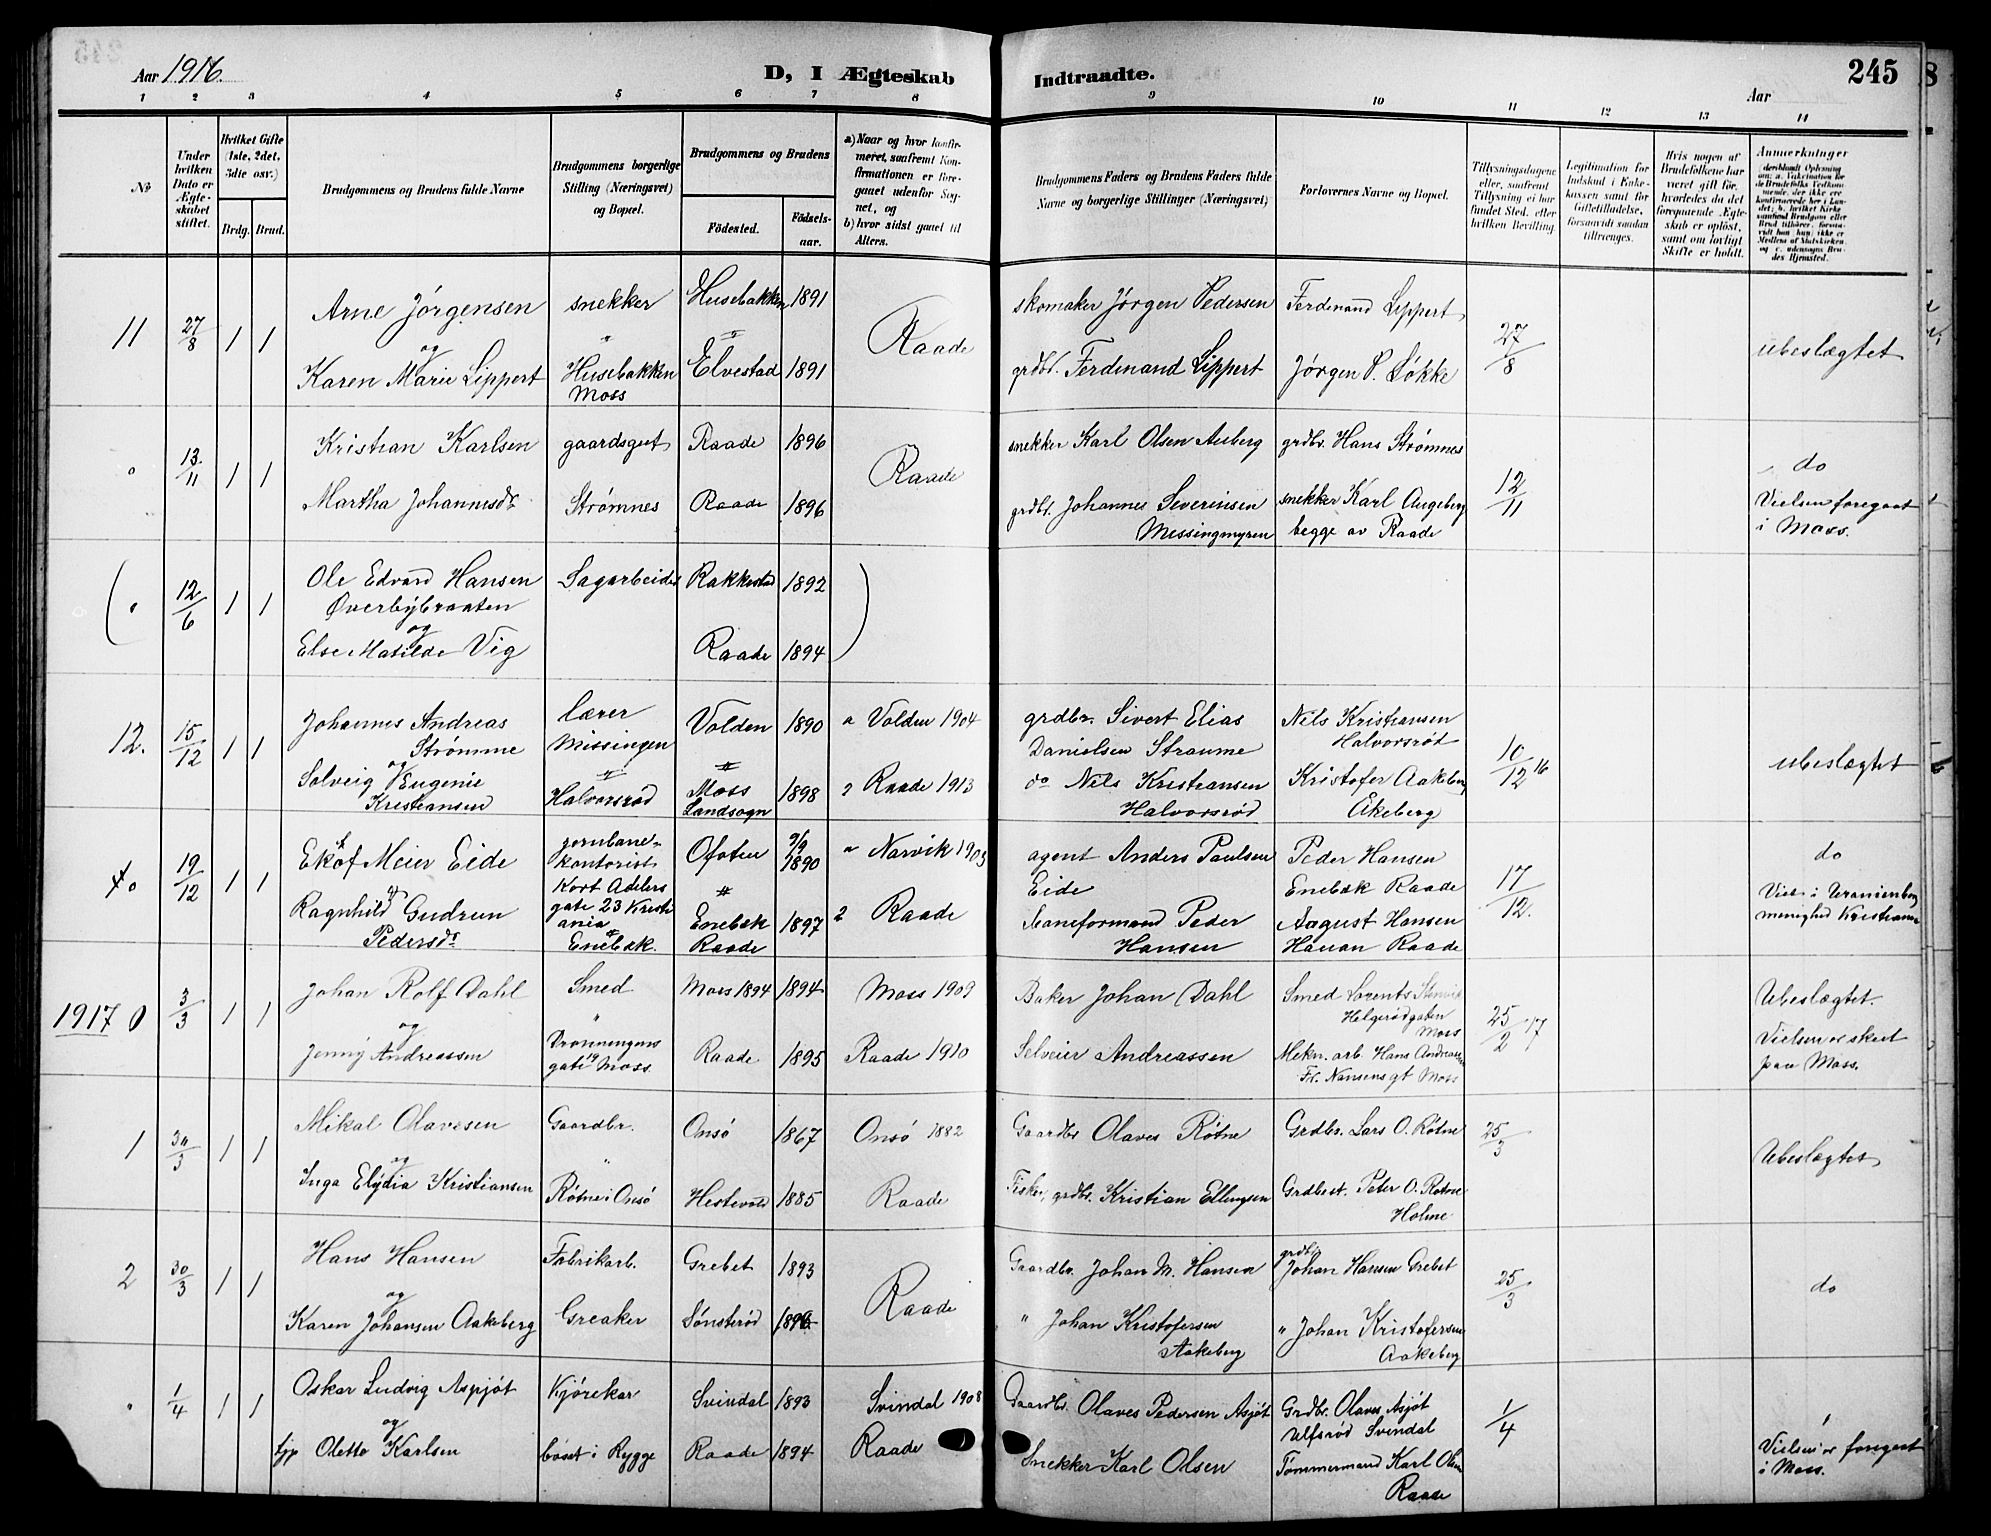 Aar 1916.
D, I Ægteskab
Indtraadte.
Aar
245
1 2 3 4 5 6 7 8 9 10 11 12 13 14
No
Under hvilken Dato er Ægteskabet stiftet.
Hvilket Gifte (1ste, 2det, 3die osv.)
Brdg. Brud.
Brudgommens og Brudens fulde Navne
Brudgommens borgerlige Stilling (Næringsvei) og Bopæl.
Brudgommens og Brudens
Fødested.
Fødselsaar.
a) Naar og hvor konfirmeret, saafremt Konfirmationen er foregaaet udenfor Sognet, og
b) hvor sidst gaaet til Alters.
Brudgommens Faders og Brudens Faders fulde Navne og borgerlige Stillinger (Næringsvei)
Forlovernes Navne og Bopæl.
Tillysningsdagene eller, saafremt Tillysning ei har fundet Sted, efter hvilken Bevilling.
Legitimation for Indskud i Enkekassen samt for Giftetilladelse, forsaavidt saadan tiltrænges.
Hvis nogen af Brudefolkene har været gift før, hvorledes da det foregaaende Ægteskab er opløst, samt om lovligt Skifte er holdt.
Anmærkninger
11 27/8 1 1 Arne Jørgensen snekker Husebakken 1891 Raade skomaker Jørgen Pedersen Ferdinand Lippert 27/8 ubeslægtet
og
Karen Marie Lippert Husebakken Moss Elvestad 1891 grdbr. Ferdinand Lippert Jørgen P. Løkke
" 13/11 1 1 Kristian Karlsen gaardsgut Raade 1896 Raade snekker Karl Olsen Auberg grdbr. Hans Strømnes 12/11 do
Martha Johannesdr Strømnes Raade 1896 grdbr. Johannes Severinsen Missingmyren snekker Karl Augeberg begge av Raade Vielsen foregaat i Moss.
( " 12/6 1 1 Ole Edvard Hansen Sagarbeider Rakkestad 1892 )
Øverbybraaten
og
Else Matilde Vig Raade 1894
12. 15/12 1 1 Johannes Andreas Strømme lærer Missingen Volden 1890 a Volden 1904 grdbr. Sivert Elias Danielsen Straume Nils Kristiansen Halvorsrød 10/12 16 ubeslægtet
og
Solveig Eugenie Kristiansen Halvorsrød Moss Landsogn 1898 2 Raade 1913 do Nils Kristiansen Halvorsrød Kristofer Aakeberg Åkeberg
19/12 1 1 Meier Eide jernbanekontorist Kort Adelers gate 23 Kristiania Ofoten 9/9 1890 a Narvik 1905 agent Anders Paulsen Eide Peder Hansen Enebæk Raade 17/12. do
Ragnhild Gudrun Pedersdr Enebæk. Enebæk Raade 1897 2 Raade Baneformand Peder Hansen August Hansen Hauan Raade Viet i Uranienborg menighed Kristiania
1917 0 3/3 1 1 Johan Rolf Dahl Smed Moss 1894 1894 Moss 1909 Baker Johan Dahl Smed Lorents Helgerødgaten Moss 25/2 17 Ubeslægtet.
og
Jenny Andreassen Dronningens gate 19 Moss Raade 1895 Raade 1910 Selveier Andreassen Mekn. arb. Hans Andreassen Fr. Nansens gt Moss Vielsen er skeet paa Moss.
1 30/3 1 1 Mikal Olavesen Gaardbr. Onsø 1867 Onsø 1882 Gaardbr Olaves Røtne Grdbr. Lars O. Røtne 25/3 Ubeslægtet
og
Inga Elydia Kristiansen Røtne i Onsø Hestevold 1885 Raade Fisker, grdbr. Kristian Ellingsen Grdbest. Peter O. Røtne Holme
2 30/3 1 1 Hans Hansen Fabrikarb. Grebet 1893 Raade Gaardbr. Johan M. Hansen grdbr Johan Hansen Grebet 25/3 do
og
Karen Johansen Aakeberg Greaker Sønsterød 1896 " Johan Kristofersen Aakeberg " Johan Kristofersen Aakeberg
" 1/4 1 1 Oskar Ludvig Aspjøt Kjørekar Svindal 1893 Svindal 1908 Gaardbr. Olaves Pedersen Asjøt Grdbr. Olaves Asjøt Ulfsrød Svindal 1/4
og
tjp Olette Karlsen bosat i Rygge Raade 1894 Raade Snekker Karl Olsen Tømmermand Karl Olsen Raade Vielsen er foregaat i Moss.